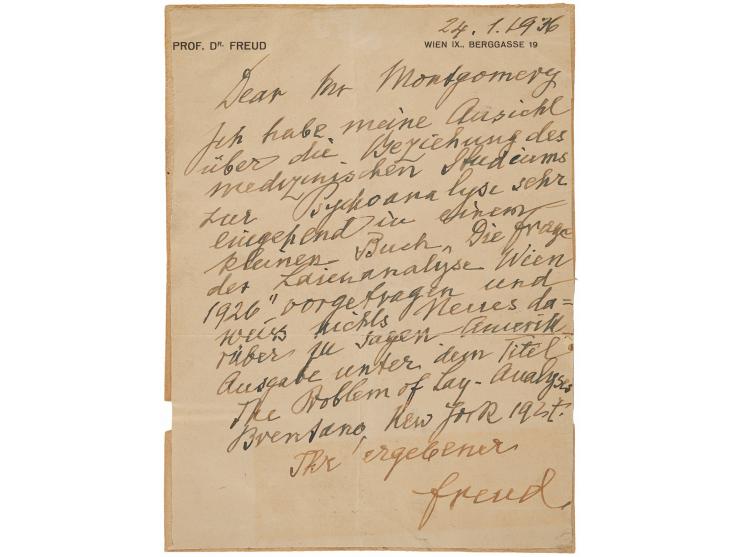 24.1.1936
PROF. DR. FREUD
WIEN IX., BERGGASSE 19
Dear Mr Montgomery
Ich habe meine Ansicht
über die Beziehung des
medizinischen Studiums
zur Psychoanalyse sehr
eingehend in einem
kleinen Buch „Die Frage
der Laienanalyse Wien
1926" vorgetragen und
weiß nichts Neues da-
rüber zu sagen Amerik
Ausgabe unter dem Titel
The Problem of Lay-Analyses
Brentano, New York 1927.
Ihr ergebener
Freud